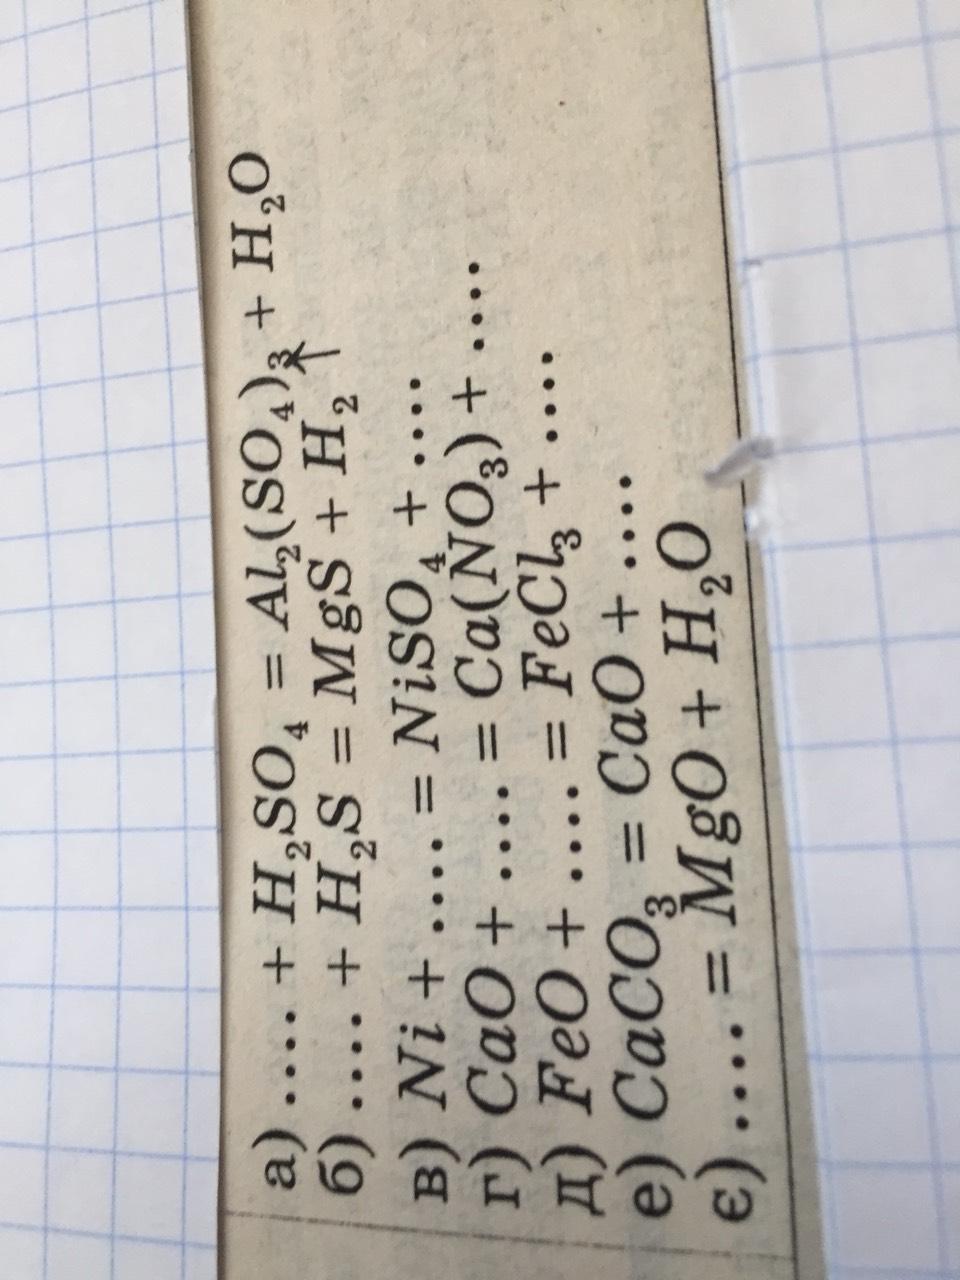 а) .... + H₂SO₄ = Al₂(SO₄)₃ + H₂O
б) .... + H₂S = MgS + H₂↑
в) Ni + .... = NiSO₄ + ....
г) CaO + .... = Ca(NO₃) + ....
д) FeO + .... = FeCl₃ + ....
е) CaCO₃ = CaO + ....
є) .... = MgO + H₂O